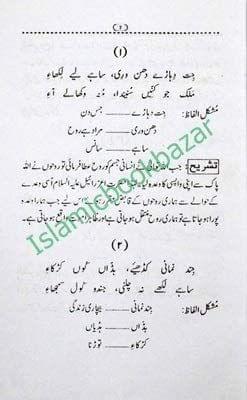 (۲)
(۱)
جت دہاڑے دھن وری، ساہے لیے لکھاءِ
ملک جو کنیں سنیندا، منہ وکھالے آءِ
مشکل الفاظ: جت دہاڑے —— جس دن
دھن وری —— مراد ہے روح
ساہے —— سانس
تشریح: جب اللہ نے انسانی جسم کو روح عطا فرمائی تو روحوں نے اللہ
پاک سے اپنی واپسی کا وعدہ لیا حضرت عزرائیل علیہ السلام اسی وعدے
کے حوالے سے ہماری روح کو قبض کرنے کے لیے جب ہمارا وعدہ
پورا ہو جاتا ہے تو ہماری روح منتقل ہو جاتی ہے اور ظاہراً موت واقع ہو جاتی ہے۔
(۲)
جند نمانی کڈھیے، ہڈاں کوں کڑکاءِ
ساہے لکھے نہ چلنی، جندو کوں سمجھاءِ
مشکل الفاظ: جند نمانی —— بیچاری زندگی
ہڈاں —— ہڈیاں
کڑکاءِ —— توڑنا
Islamicbookbazar